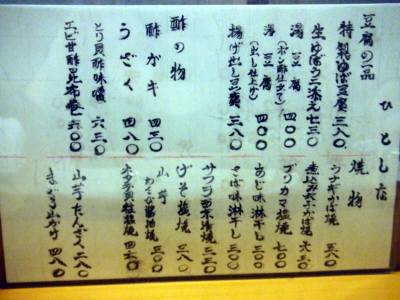 豆腐の一品 ひとしな
特製ゆば豆腐 三八〇
生ゆばうに添え 七三〇
湯豆腐 (ポン酢仕立て) 四〇〇
湯豆腐 (だし仕上げ) 四〇〇
揚げ出し豆腐 三八〇
酢の物
酢がき 四三〇
うざく 四八〇
とり貝酢味噌 六三〇
エビ甘酢昆布巻 六〇〇
焼物
五八〇
六三〇
ブリカマ塩焼 七〇〇
あじ味淋干し 三〇〇
さば味淋干し 三〇〇
サワラ西京漬焼 三三〇
げそ塩焼 三八〇
山芋わさび醤油焼 三五〇
山芋たんざく 二八〇
まぐろ山かけ 四八〇